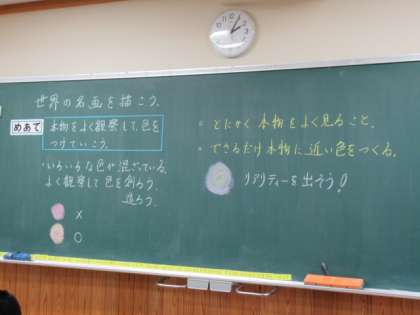 世界の名画を描こう.
めあて
本物をよく観察して、色を
つけていこう.
・いろいろな色が混ざっている.
よく観察して色を創ろう.
造ろう.
×
○
・とにかく本物をよく見ること.
・できるだけ本物に近い色をつくる.
リアリティーを出そう!